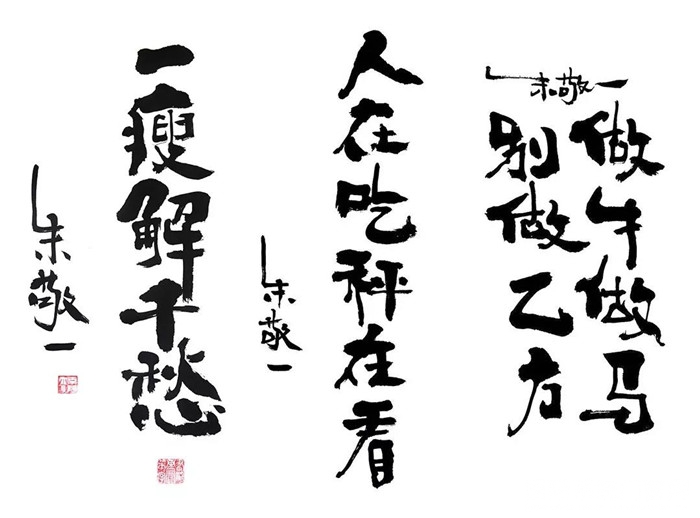 做牛做马
别做乙方
朱敬一
人在吃秤在看
朱敬一
一瘦解千愁
朱敬一